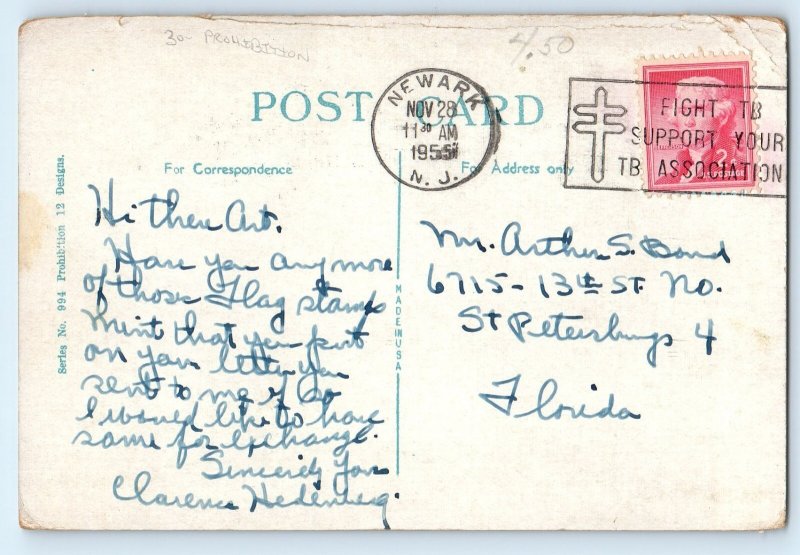 30- PROHIBITION
4.50
POST CARD
NEWARK
NOV 28
11 30 AM
1955
N. J.
FIGHT TB
SUPPORT YOUR
TB ASSOCIATION
2¢
POSTAGE
For Correspondence
For Address only
Series No. 994 Prohibition 12 Designs.
MADE IN USA
Hi there Art.
Have you any more
of those Flag stamps
mint that you put
on your letter you
sent to me if so
I would like to have
some for exchange.
Sincerely Yours
Clarence
Mr. Arthur S. Bond
6715-13th ST. NO.
St Petersburg 4
Florida